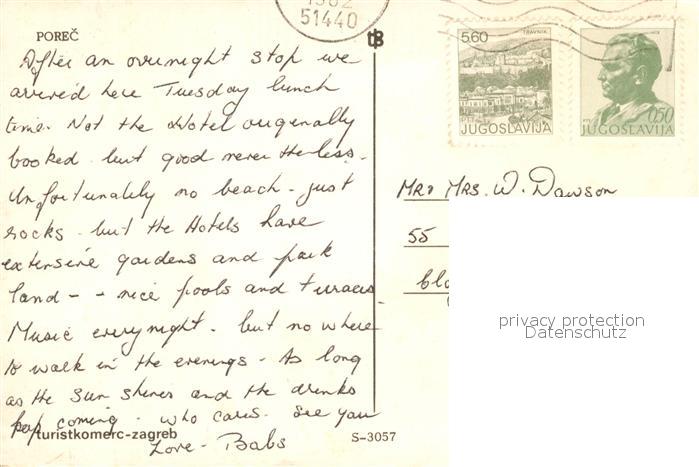 1982
51440
POREČ
tB
After an overnight stop we
arrived here Tuesday lunch
time. Not the Hotel originally
booked but good never the less.
Unfortunately no beach - just
rocks - but the Hotels have
extensive gardens and park
land - - nice pools and terraces
Music every night - but no where
to walk in the evenings - As long
as the sun shines and the drinks
keep coming - who cares. See you
Love - Babs
turistkomerc-zagreb
S-3057
5.60
TRAVNIK
JUGOSLAVIJA
0.50
JUGOSLAVIJA
MR & MRS. W. Dawson
55
privacy protection
Datenschutz